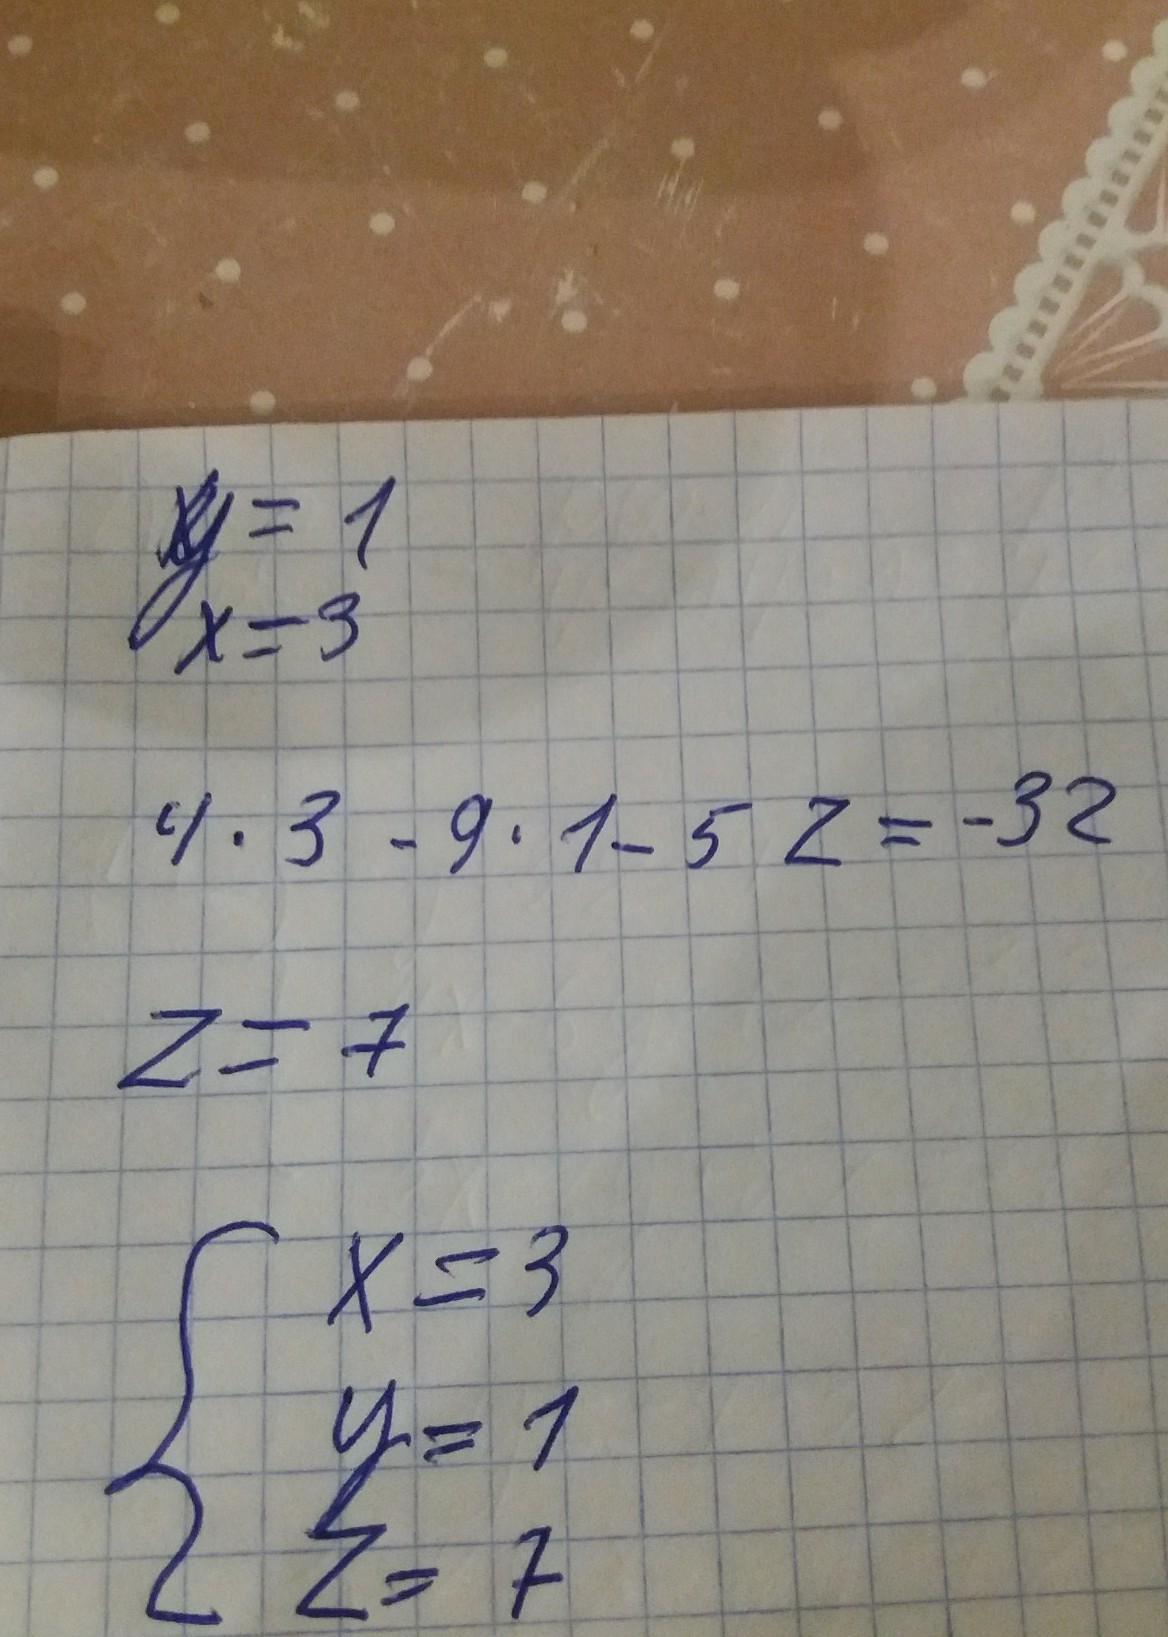 y = 1
x = 3
4 · 3 - 9 · 1 - 5 z = -32
z = 7
{ x = 3
y = 1
z = 7